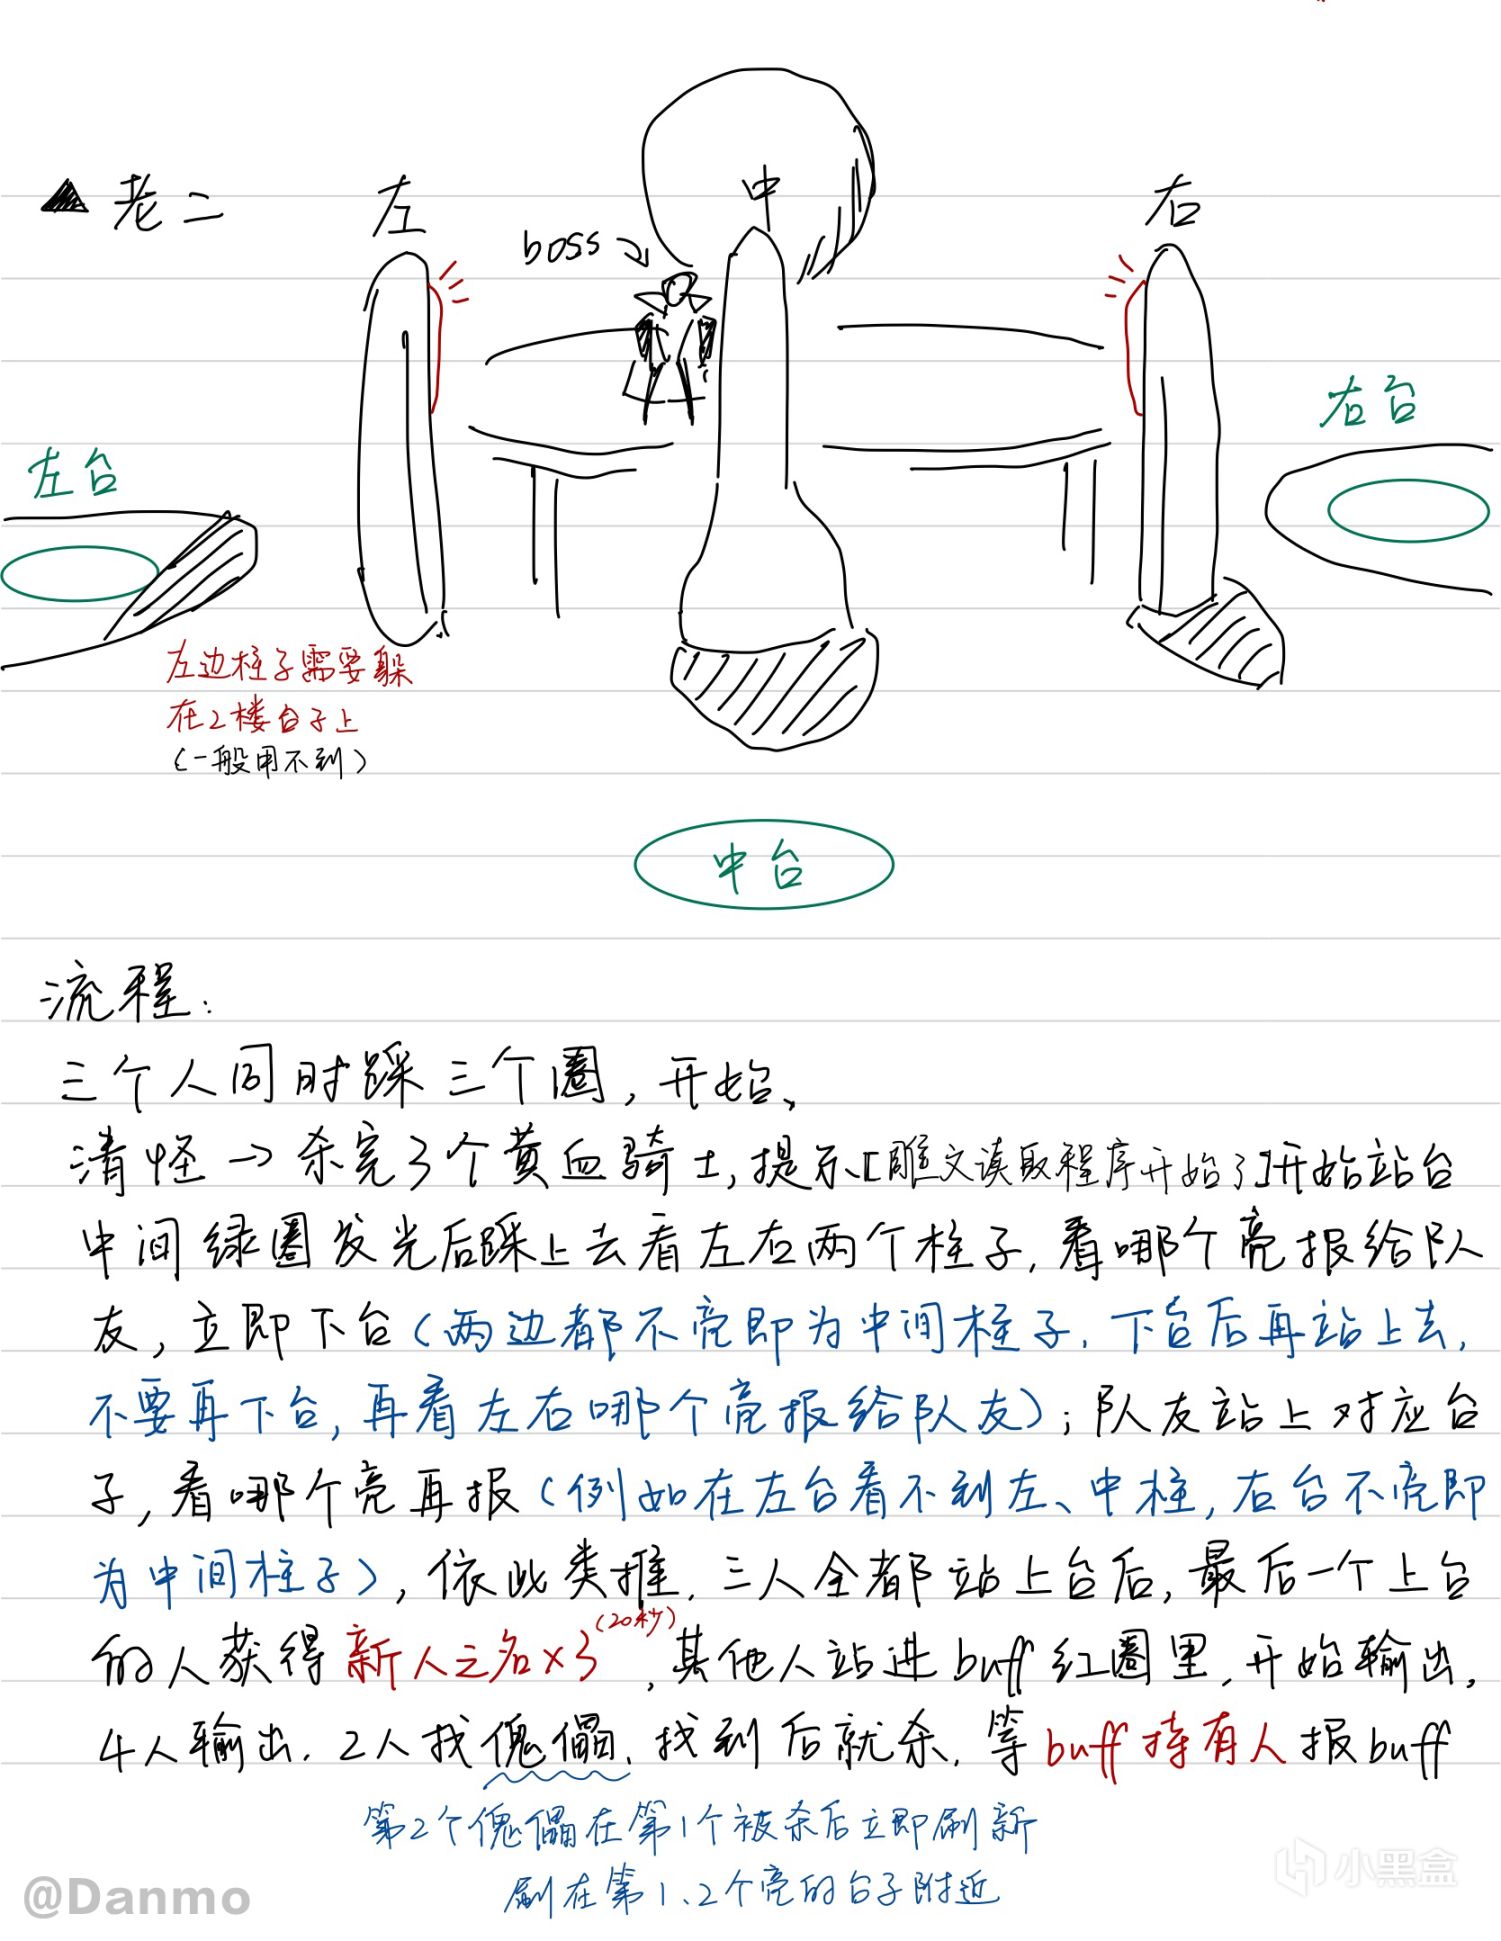 老二
左
中
右
boss
右台
左台
左边柱子需要躲
在2楼台子上
(一般用不到)
中台
流程:
三个人同时踩三个圈,开始、
清怪→杀完3个黄血骑士,提示[雕文读取程序开始了]开始站台
中间绿圈发光后踩上去看左右两个柱子,看哪个亮报给队
友,立即下台(两边都不亮即为中间柱子,下台后再站上去,
不要再下台,再看左右哪个亮报给队友);队友站上对应台
子,看哪个亮再报(例如在左台看不到左、中柱,右台不亮即
为中间柱子),依此类推,三人全都站上台后,最后一个上台
的人获得新人之名×3(20秒),其他人站进buff红圈里,开始输出,
4人输出,2人找傀儡,找到后就杀,等buff持有人报buff
第2个傀儡在第1个被杀后立即刷新
刷在第1、2个亮的台子附近
@Danmo
小黑盒